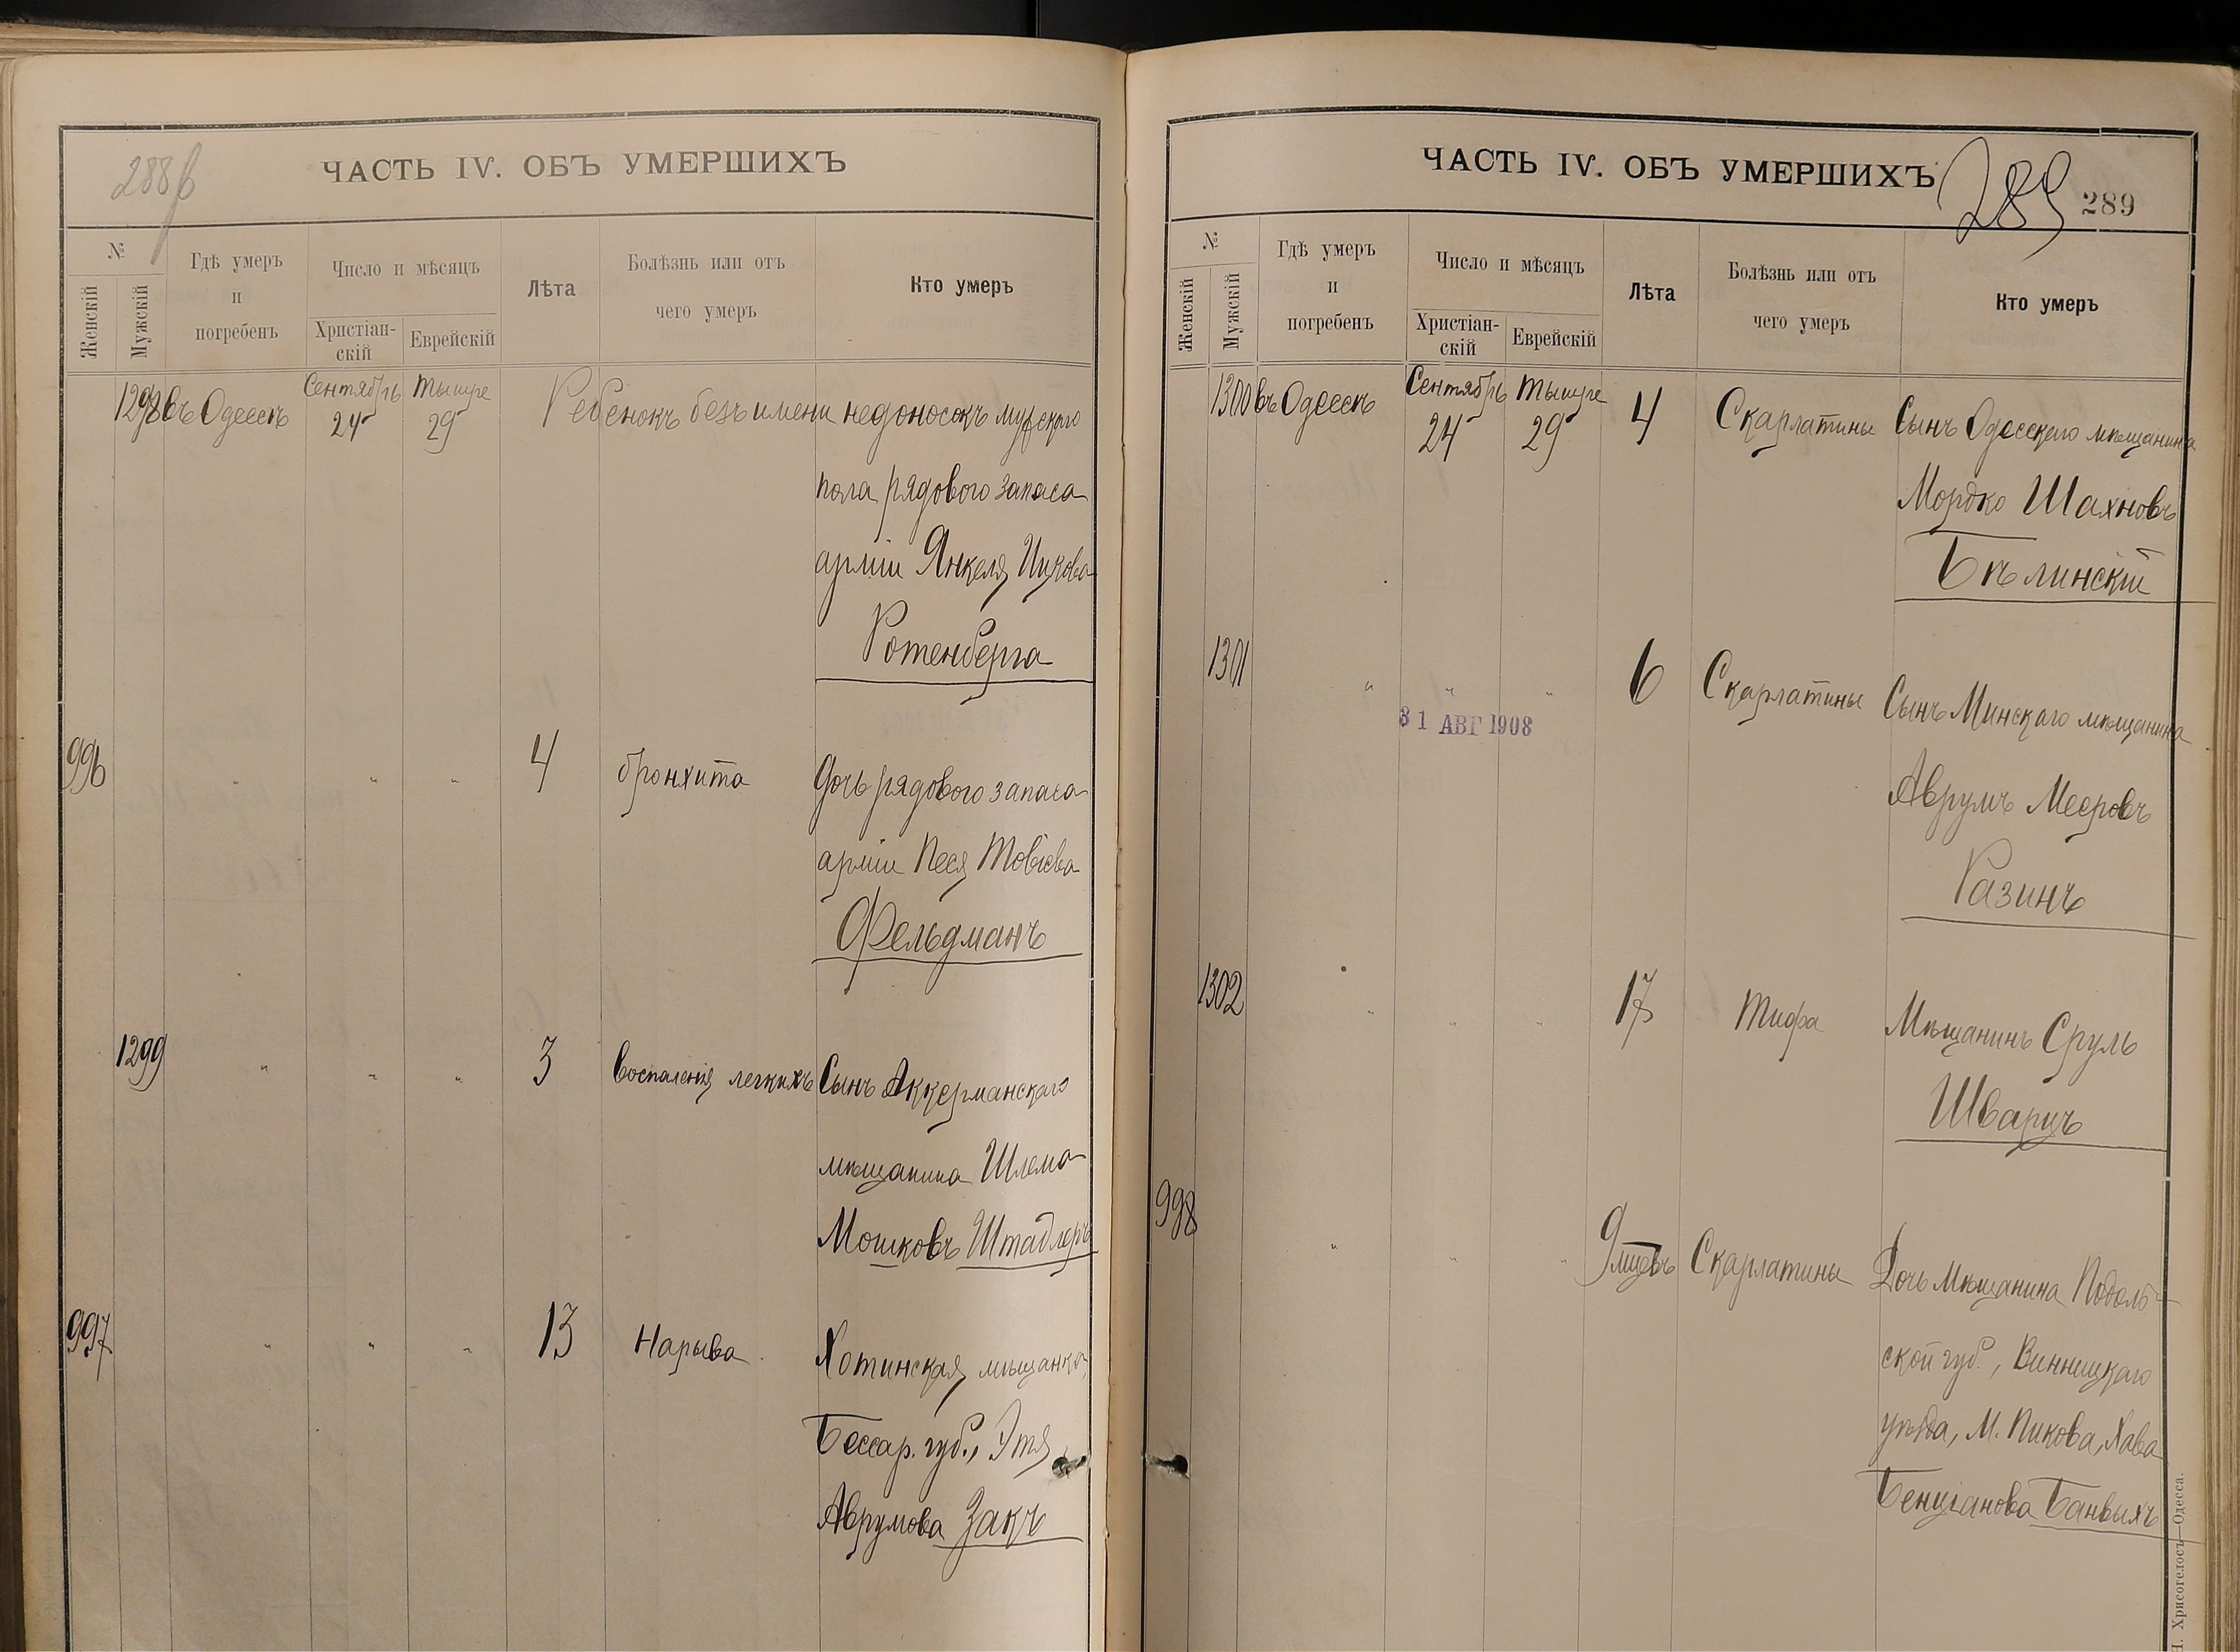 288 б
ЧАСТЬ IV. ОБЪ УМЕРШИХЪ
№
Женскій
Мужскій
Гдѣ умеръ
и
погребенъ
Число и мѣсяцъ
Христіан-
скій
Еврейскій
Лѣта
Болѣзнь или отъ
чего умеръ
Кто умеръ
1298 въ Одессѣ Сентябрь 24 Тышре 29 Ребенокъ безъ имени недоносокъ мужскаго
пола рядового запаса
арміи Янкеля Ицкова
Ротенберга
996 " " " 4 бронхита Дочь рядового запаса
арміи Песя Товіева
Фельдманъ
1299 " " " 3 воспаленія легкихъ Сынъ Аккерманскаго
мѣщанина Шлема
Мошковъ Штадлеръ
997 " " " 13 Нарыва Хотинская мѣщанка,
Бессар. губ., Этя
Аврумова Закъ
ЧАСТЬ IV. ОБЪ УМЕРШИХЪ
289
289
№
Женскій
Мужскій
Гдѣ умеръ
и
погребенъ
Число и мѣсяцъ
Христіан-
скій
Еврейскій
Лѣта
Болѣзнь или отъ
чего умеръ
Кто умеръ
1300 въ Одессѣ Сентябрь 24 Тышре 29 4 Скарлатины Сынъ Одесскаго мѣщанина
Мордко Шахновъ
Бѣлинскій
1301 " " " 6 Скарлатины Сынъ Минскаго мѣщанина
31 АВГ 1908
Аврумъ Мееровъ
Разинъ
1302 " " " 17 Тифа Мѣщанинъ Сруль
Шварцъ
998 " " " 9 мцевъ Скарлатины Дочь Мѣщанина Подоль-
ской губ., Винницкаго
уѣзда, М. Пикова, Хава
Бенціанова Банвыхъ
Н. Хрисогелосъ—Одесса.